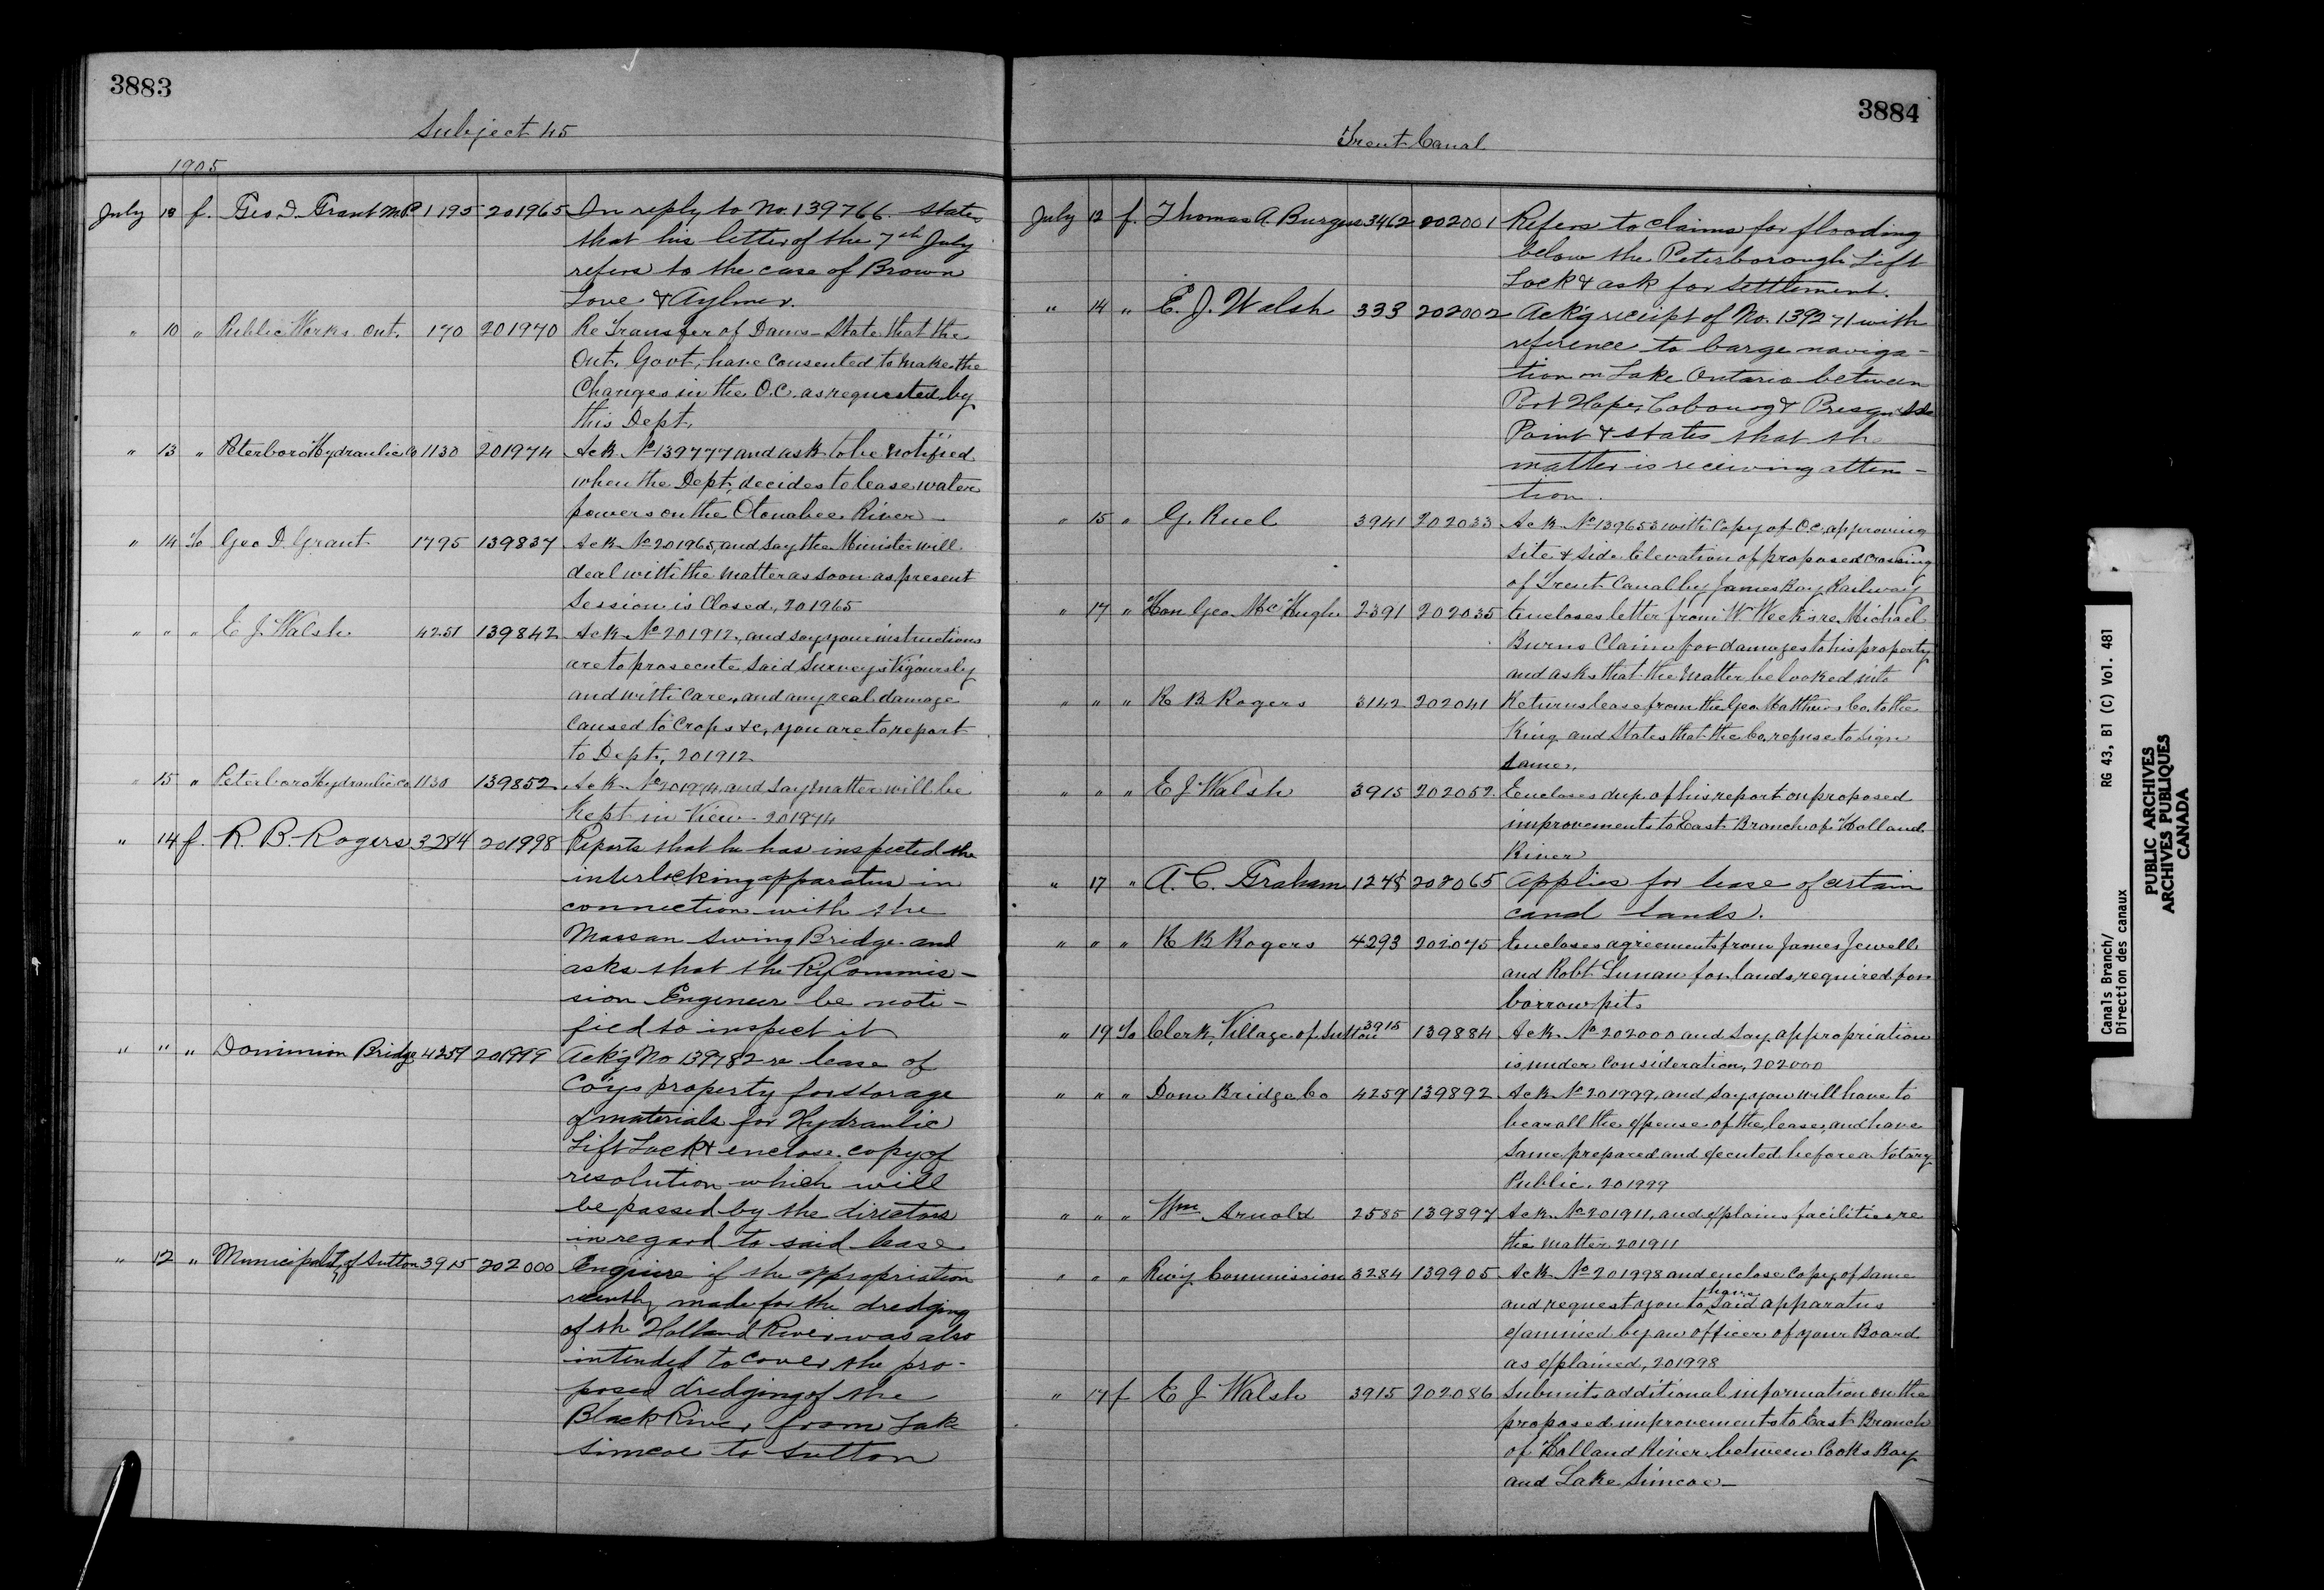 3883
Subject 45
1905
July 13 f. Geo. D. Grant M.P. 1795 201965 In reply to No. 139766 states
that his letter of the 7th July
refers to the case of Brown
Love & Aylmer.
" 10 " Public Works Ont. 170 201970 Re Transfer of Dams - State that the
Ont. Govt. have consented to make the
Changes in the O.C. as requested by
this Dept.
" 13 " Peterboro Hydraulic Co 1130 201974 Ack No 139777 and ask to be notified
when the Dept. decides to lease water
powers on the Otonabee River -
" 14 To Geo D. Grant 1795 139837 Ack No 201965, and say the Minister will
deal with the matter as soon as present
Session is Closed, 201965
" " " E J. Walsh 4251 139842 Ack No 201912, and say your instructions
are to prosecute said Surveys Vigoursly
and with care, and any real damage
caused to Crops &c, you are to report
to Dept, 201912
" 15 " Peterboro Hydraulic Co 1130 139852 Ack No 201974 and say matter will be
Kept in View - 201974
" 14 f. R. B. Rogers 3284 201998 Reports that he has inspected the
interlocking apparatus in
connection with the
Massan Swing Bridge and
asks that the Ry Commis-
sion Engineer be noti-
fied to inspect it
" " " Dominion Bridge 4259 201999 Ack'g No 139782 re lease of
Coys property for storage
of materials for Hydraulic
Lift Lock & enclose copy of
resolution which will
be passed by the directors
in regard to said lease
" 12 " Municipality of Sutton 3915 202000 Enquire if the appropriation
recently made for the dredging
of the Holland River was also
intended to cover the pro-
posed dredging of the
Black River, from Lake
Simcoe to Sutton
3884
Trent Canal
July 12 f. Thomas A. Burgess 3462 202001 Refers to claims for flooding
below the Peterborough Lift
Lock & ask for settlement.
" 14 " E. J. Walsh 333 202002 Ack'g receipt of No. 139271 with
reference to barge naviga-
tion on Lake Ontario between
Port Hope, Cobourg & Presqu'Isle
Point & states that the
matter is receiving atten-
tion.
" 15 " G. Ruel 3941 202033 Ack No 139653 with Copy of O.C. approving
site & side Elevation of proposed crossing
of Trent Canal by James Bay Railway
" 17 " Hon. Geo. McHugh 2391 202035 Encloses letter from W. Weeks re Michael
Burns Claim for damages to his property
and asks that the matter be looked into
" " " R B Rogers 3142 202041 Returns lease from the Geo. Matthews Co. to the
King and States that the Co. refuse to sign
same.
" " " E J Walsh 3915 202052 Encloses dup. of his report on proposed
improvements to East Branch of Holland
River
" 17 " A. C. Graham 202065 Applies for lease of certain
canal lands.
" " " R B Rogers 4293 202075 Encloses agreements from James Jewell
and Robt Lunan for lands required for
borrow pits
" 19 To Clerk, Village of Sutton 3915 139884 Ack No 202000 and say appropriation
is under Consideration, 202000
" " " Dom Bridge Co 4259 139892 Ack No 201999, and say you will have to
bear all the expense of the lease, and have
same prepared and executed before a Notary
Public. 201999
" " " Wm Arnold 2585 139897 Ack No 201911, and explains facilities re
the matter 201911
" " " Rwy Commission 3284 139905 Ack No 201998 and enclose Copy of same
and request you to have said apparatus
examined by an officer of your Board
as explained, 201998
" 17 f E J Walsh 3915 202086 Submits additional information on the
proposed improvements to East Branch
of Holland River between Cooks Bay
and Lake Simcoe -
Canals Branch/ RG 43, B1 (C) Vol. 481
Direction des canaux
PUBLIC ARCHIVES
ARCHIVES PUBLIQUES
CANADA